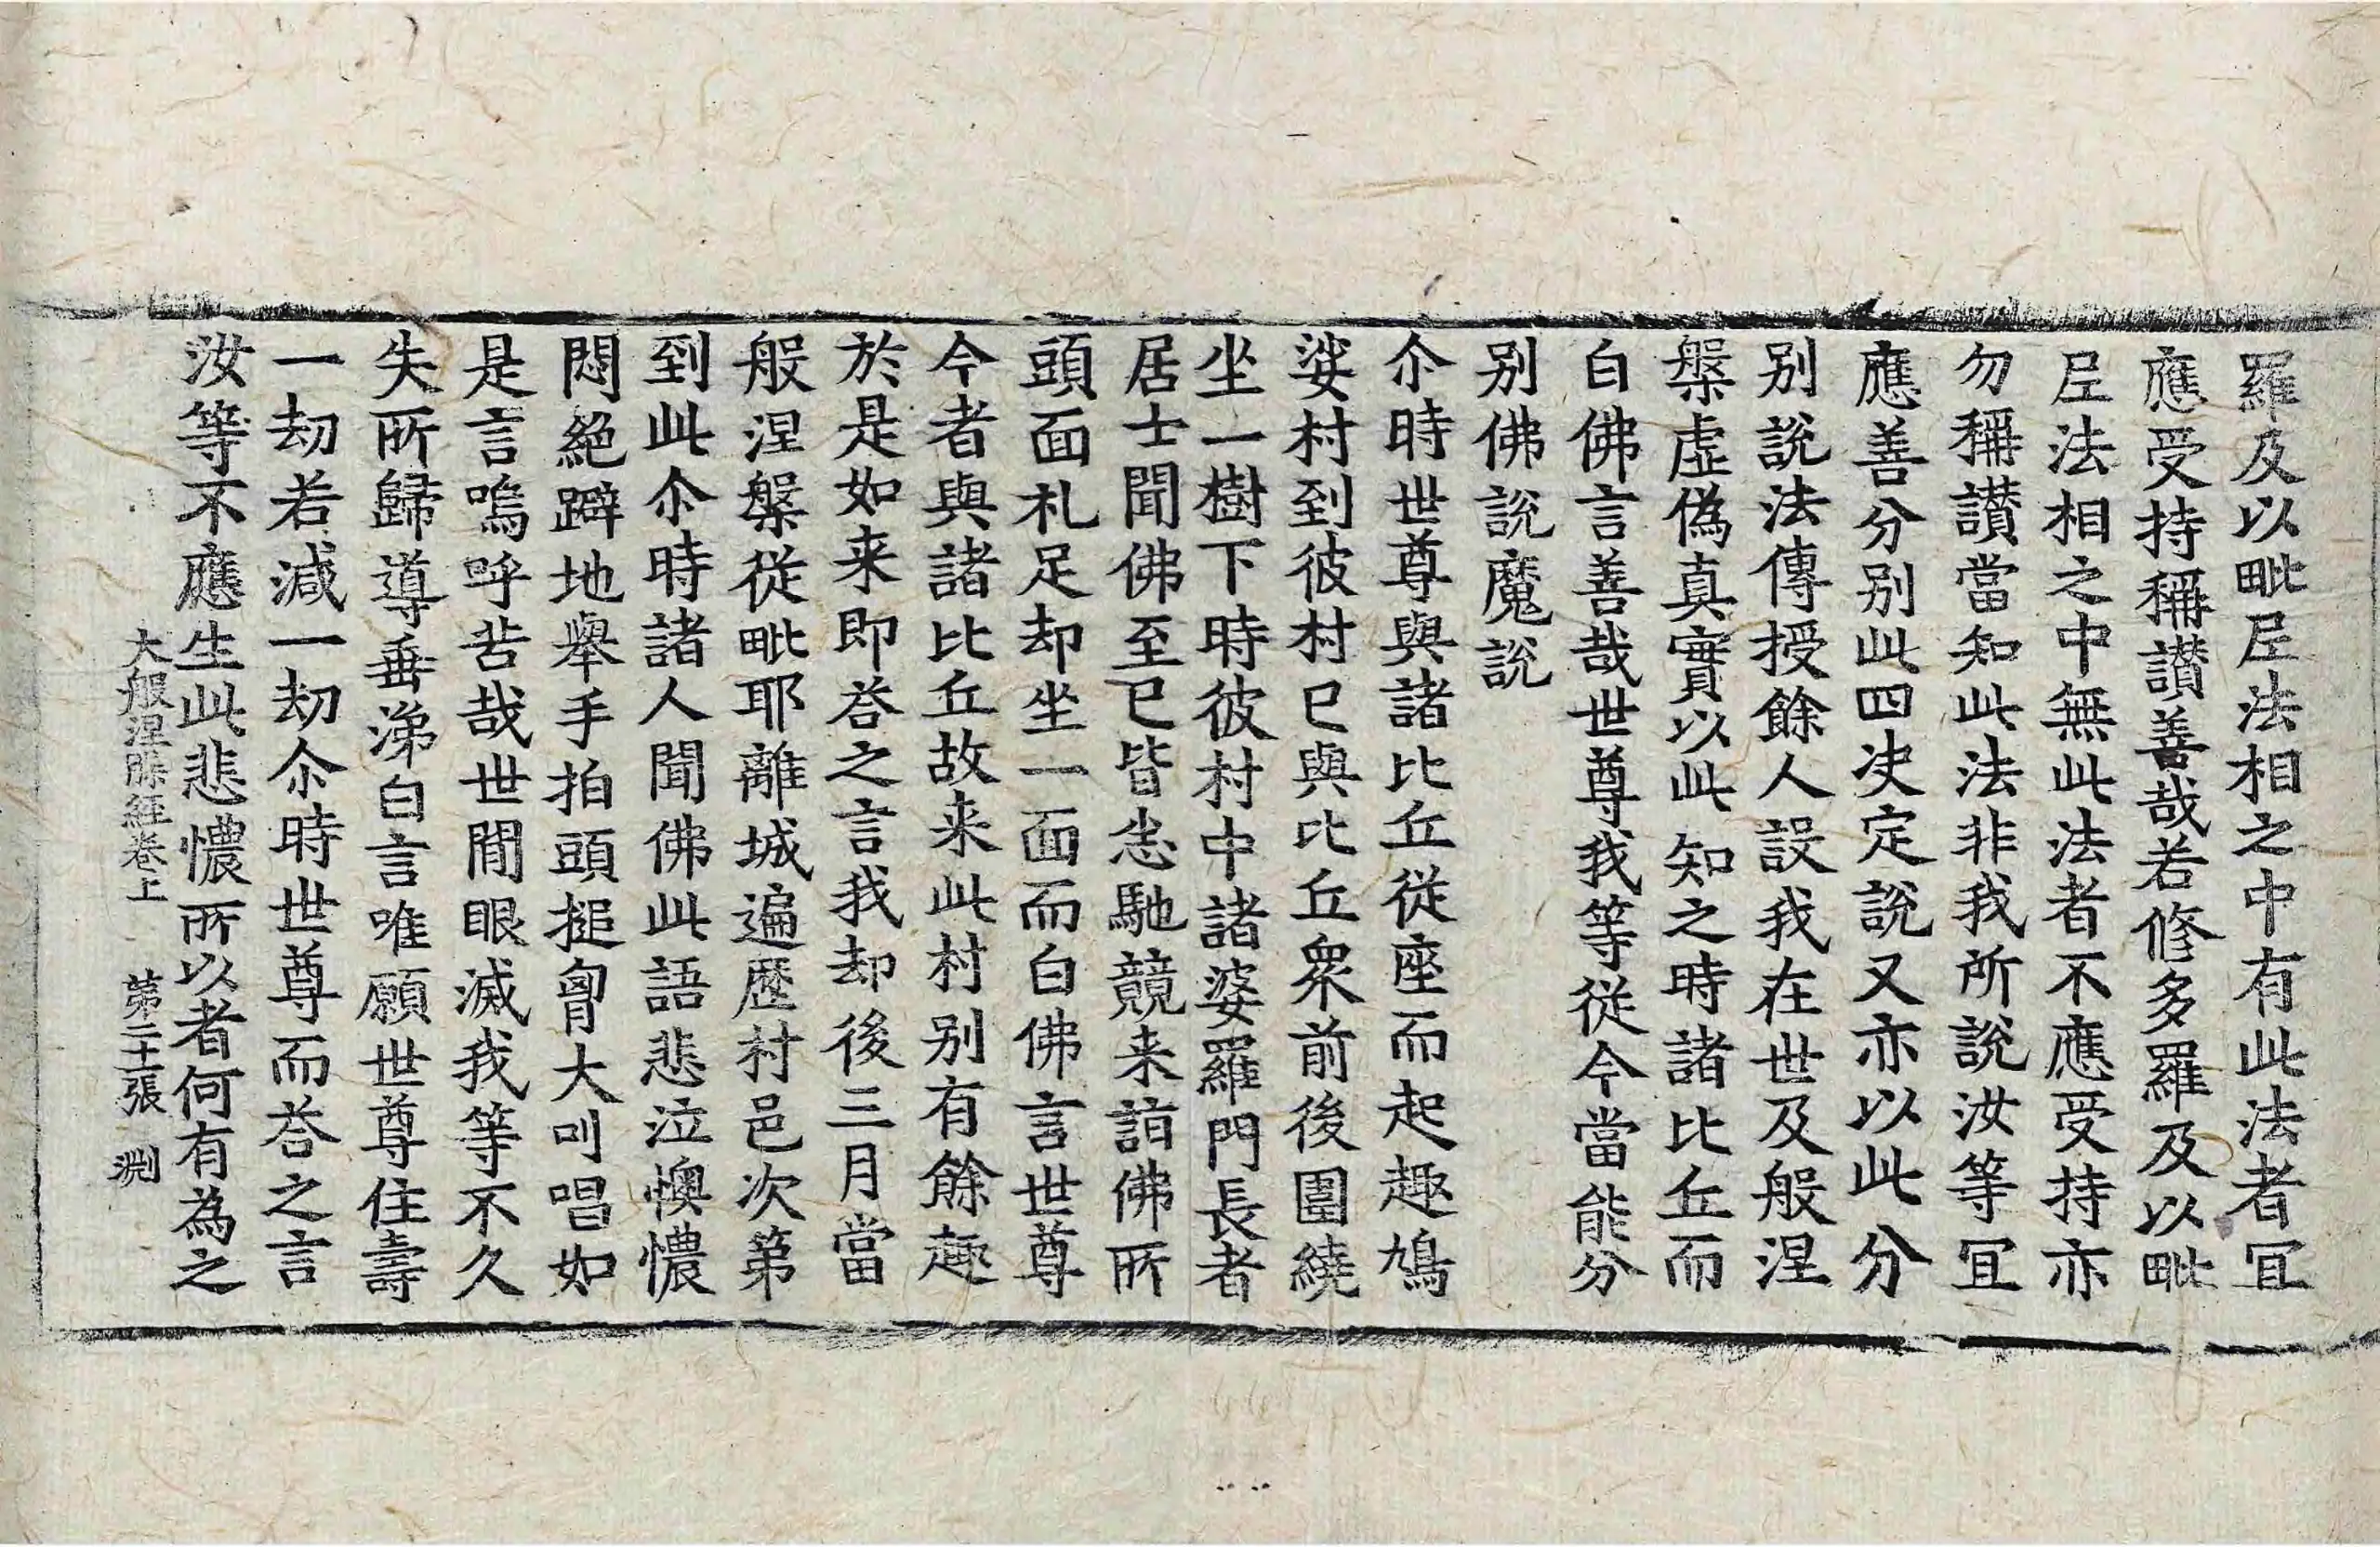 羅及以毗𡰱法相之中有此法者冝
應受持稱讃善哉若修多羅及以毗
𡰱法相之中無此法者不應受持亦
勿稱讃當知此法非我所說汝等冝
應善分別此四决定說又亦以此分
別說法傳授餘人設我在世及般涅
槃虛偽真實以此知之時諸比丘而
白佛言善哉世尊我等従今當能分
別佛說魔說
尒時世尊與諸比丘従座而起趣鳩
娑村到彼村已與比丘衆前後圍繞
坐一樹下時彼村中諸婆羅門長者
居士聞佛至已皆悉馳競来詣佛所
頭面礼足却坐一面而白佛言世尊
今者與諸比丘故来此村別有餘趣
於是如来即荅之言我却後三月當
般涅槃従毗耶離城遍歷村邑次第
到此尒時諸人聞佛此語悲泣懊憹
悶絕躃地舉手拍頭搥胷大叫唱如
是言嗚呼苦哉世閒眼滅我等不久
失所歸導垂涕白言唯願世尊住壽
一劫若減一劫尒時世尊而荅之言
汝等不應生此悲憹所以者何有為之
大般涅槃經卷上　第二十張　淵